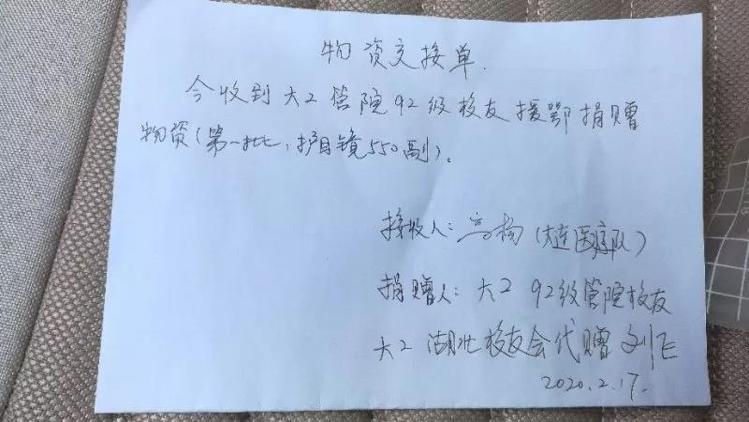 物资交接单.
今收到大工管院92级校友援鄂捐赠
物资(第一批,护目镜550副)。
接收人:高杨(大连医疗队)
捐赠人:大工 92级管院校友
大工湖北校友会代赠 刘飞
2020.2.17.